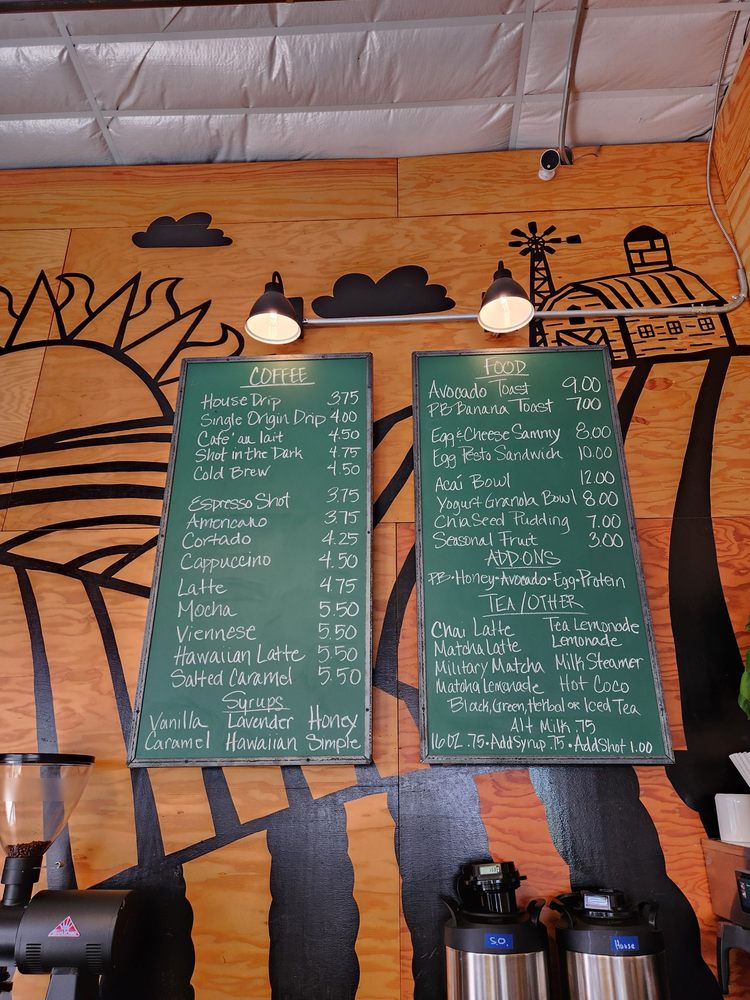 COFFEE
House Drip 3.75
Single Origin Drip 4.00
Cafe' au lait 4.50
Shot in the Dark 4.75
Cold Brew 4.50
Espresso Shot 3.75
Americano 3.75
Cortado 4.25
Cappuccino 4.50
Latte 4.75
Mocha 5.50
Viennese 5.50
Hawaiian Latte 5.50
Salted Caramel 5.50
Syrups
Vanilla Lavender Honey
Caramel Hawaiian Simple
FOOD
Avocado Toast 9.00
PB Banana Toast 7.00
Egg & Cheese Sammy 8.00
Egg Pesto Sandwich 10.00
Acaí Bowl 12.00
Yogurt Granola Bowl 8.00
Chia Seed Pudding 7.00
Seasonal Fruit 3.00
ADD-ONS
PB • Honey • Avocado • Egg • Protein
TEA/OTHER
Chai Latte Tea Lemonade
Matcha Latte Lemonade
Military Matcha Milk Steamer
Matcha Lemonade Hot Coco
Black, Green, Herbal or Iced Tea
Alt Milk .75
16 OZ .75 • Add Syrup .75 • Add Shot 1.00
S.O.
House